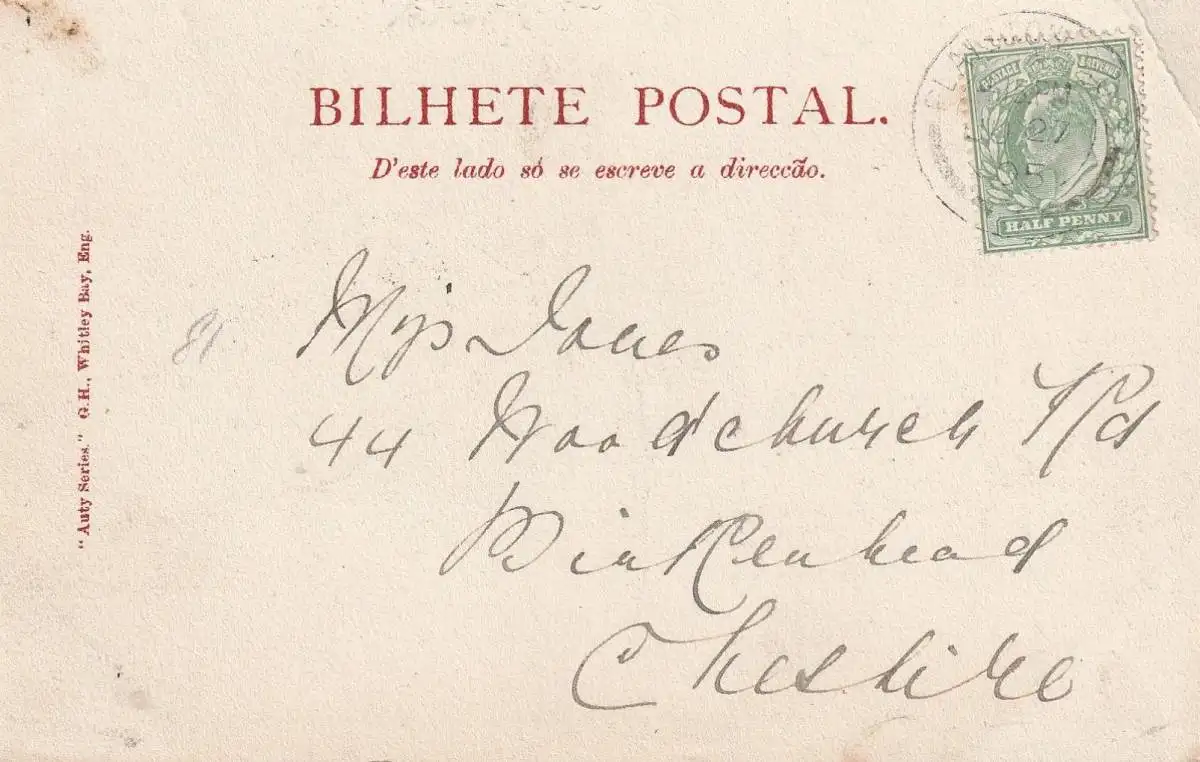 BILHETE POSTAL.
D'este lado só se escreve a direccão.
POSTAGE REVENUE
27
HALF PENNY
"Auty Series." G.H., Whitley Bay, Eng.
81.
Miss Jones
44 Woodchurch Rd
Birkenhead
Cheshire